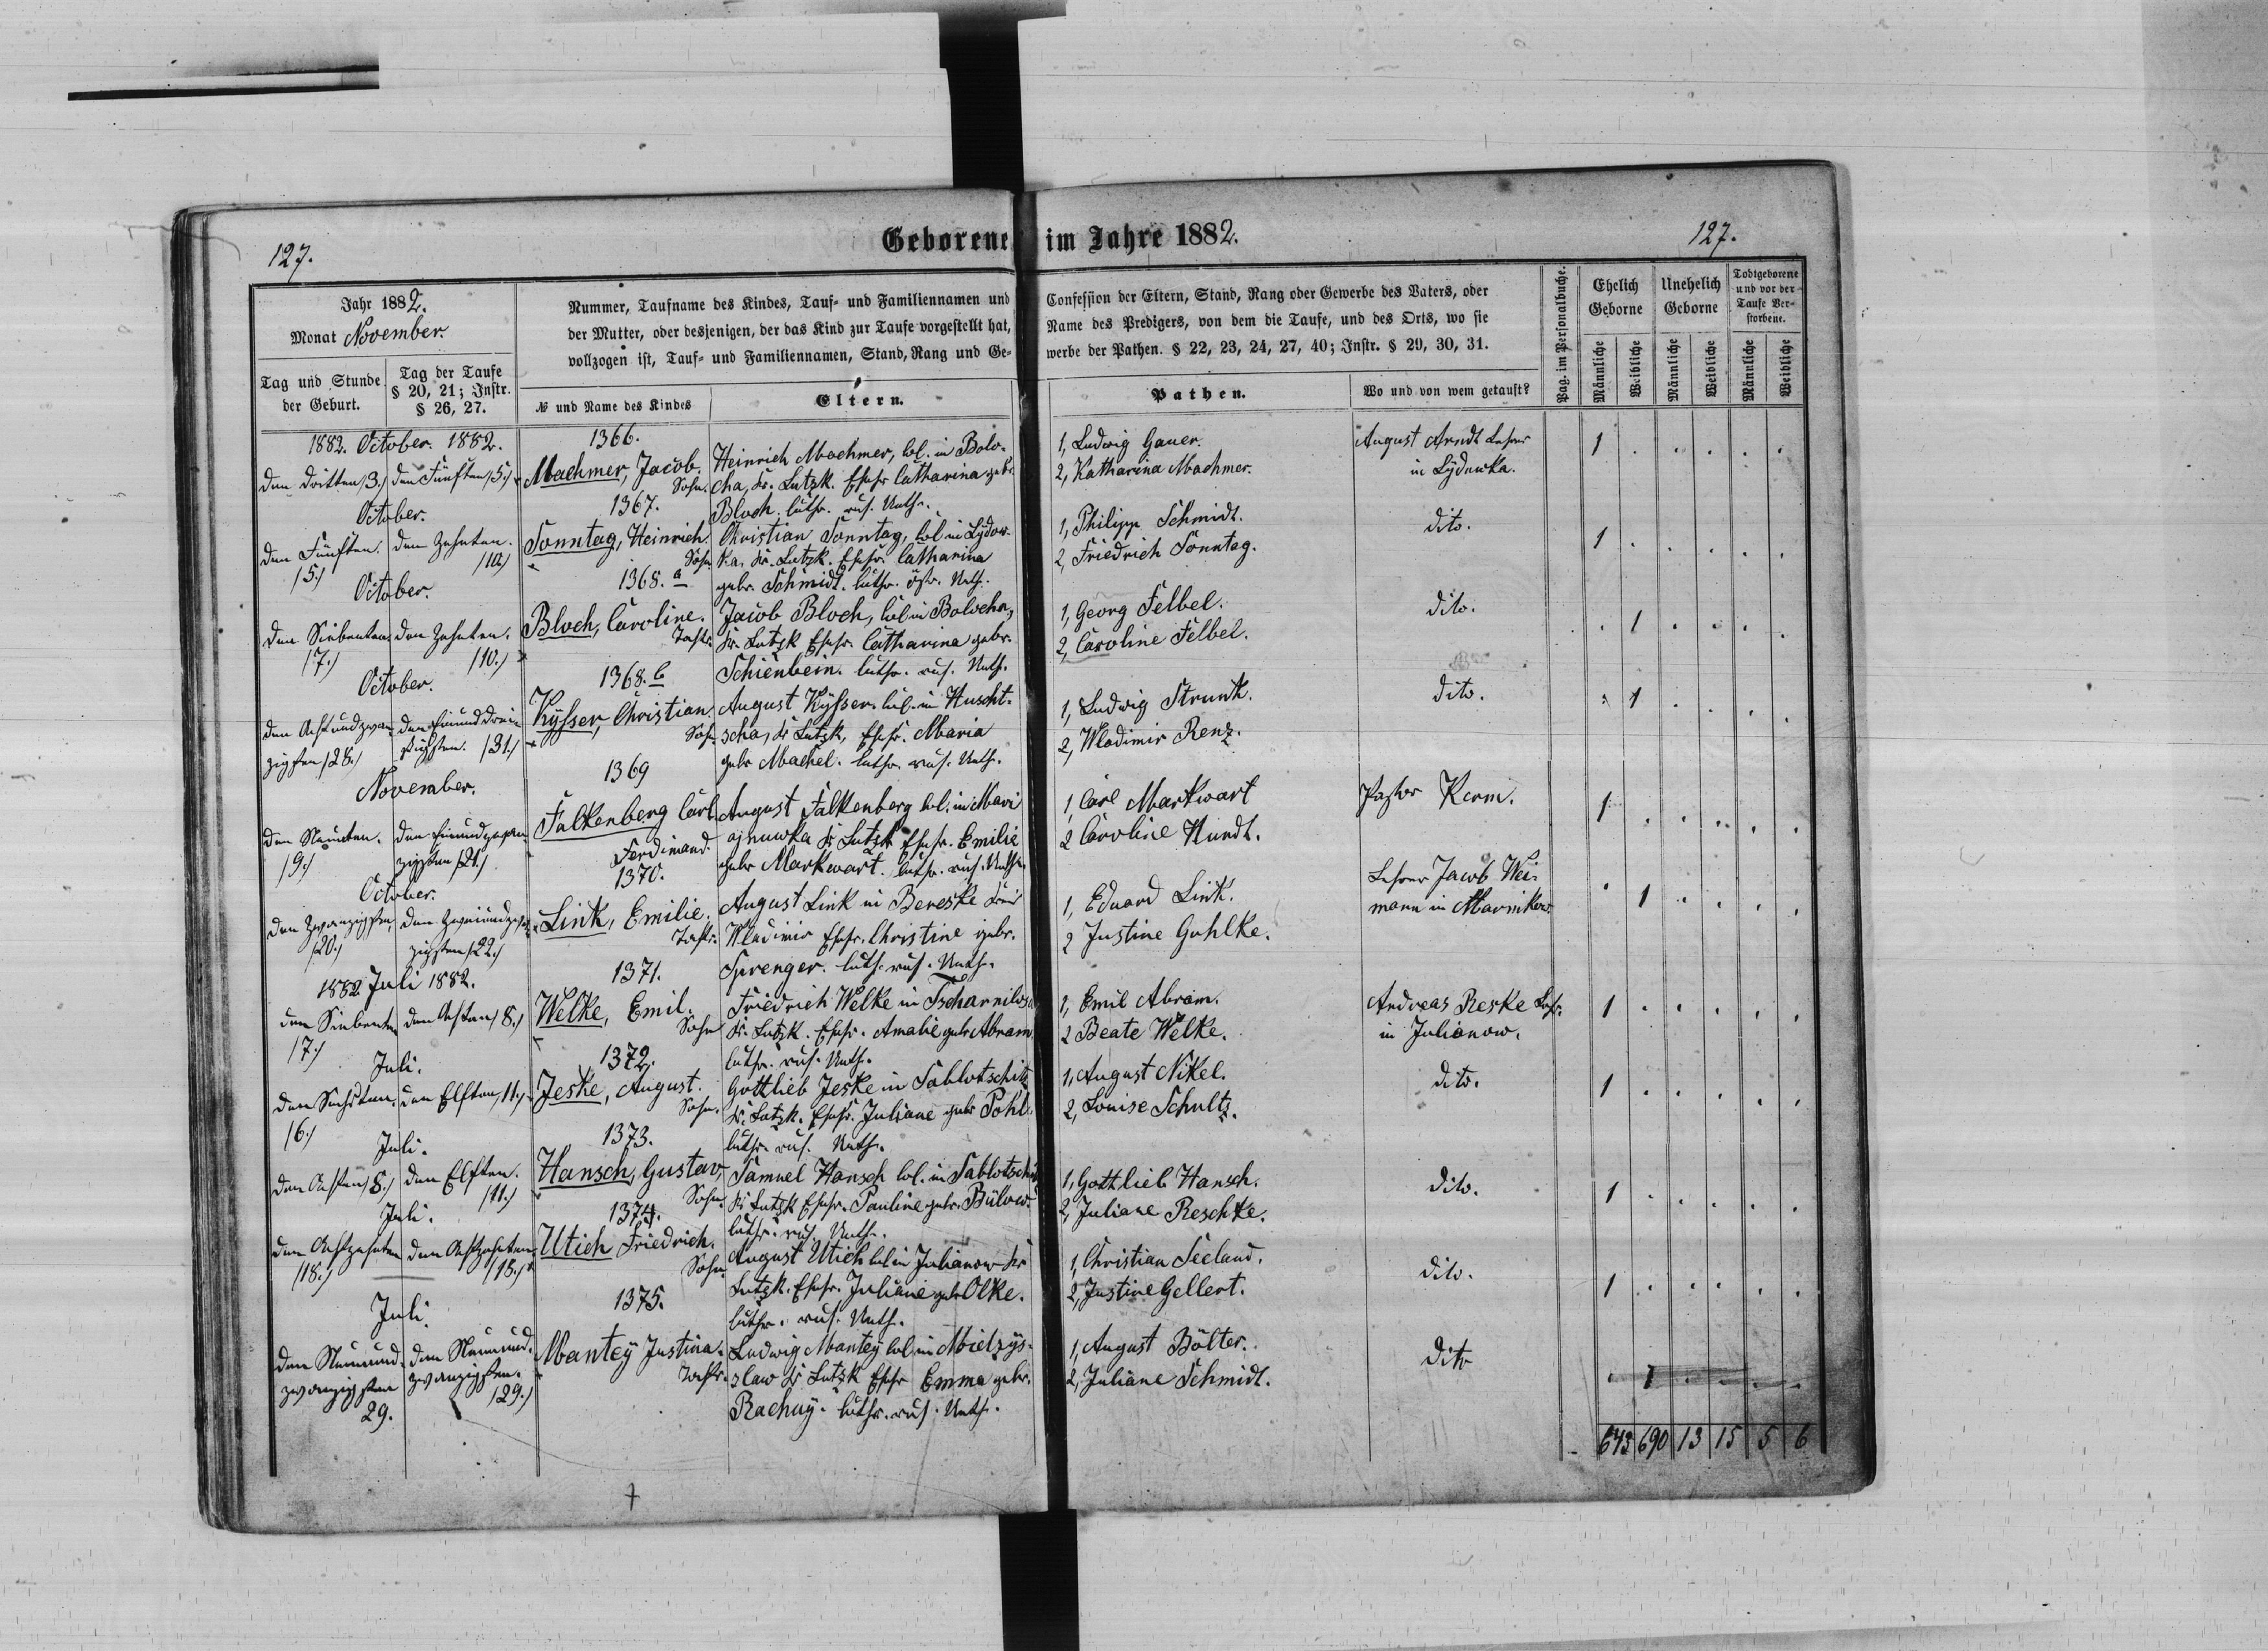 127.
Geborene im Jahre 1882.
127.
Jahr 1882.
Monat November.
Tag und Stunde der Geburt.
Tag der Taufe § 20, 21; Instr. § 26, 27.
Nummer, Taufname des Kindes, Tauf- und Familiennamen und
der Mutter, oder desjenigen, der das Kind zur Taufe vorgestellt hat,
vollzogen ist, Tauf- und Familiennamen, Stand, Rang und Ge-
№ und Name des Kindes
Eltern.
Confession der Eltern, Stand, Rang oder Gewerbe des Vaters, oder
Name des Predigers, von dem die Taufe, und des Orts, wo sie
werbe der Pathen. § 22, 23, 24, 27, 40; Instr. § 29, 30, 31.
Pathen.
Wo und von wem getauft?
Pag. im Personalbuche.
Ehelich Geborne
Unehelich Geborne
Todtgeborene und vor der Taufe Ver-storbene.
Männliche
Weibliche
Männliche
Weibliche
Männliche
Weibliche
1882. October. 1882.
den Dritten /3./
den Fünften /5./
1366.
Machmer, Jacob.
Sohn.
Heinrich Machmer, kol. in Bolo-
cha, Kr. Lutzk. Ehefr. Catharina gebr.
Bloch. luthr. rus. Unth.
1, Ludwig Gauer.
2, Katharina Machmer.
August Arndt Lehrer
in Lÿdowka.
1 . . . . .
October.
den Fünften.
/5./
den Zehnten.
/10./
1367.
Sonntag, Heinrich.
Sohn
Christian Sonntag, kol in Lÿdow-
ka, Kr. Lutzk. Ehefr. Catharina
gebr. Schmidt. luthr. östr. Unth.
1, Philipp Schmidt.
2, Friedrich Sonntag.
dito.
1 . . . . .
October.
den Siebenten
/7./
den Zehnten.
/10./
1368. a
Bloch, Caroline.
Tochtr.
Jacob Bloch, kol in Bolocha,
Kr. Lutzk Ehefr. Catharina gebr.
Schienbein. luthr. rus. Unth.
1, Georg Felbel.
2, Caroline Felbel.
dito.
. 1 . . . .
October.
den Achtundzwan-
zigsten /28./
den Einunddrei-
ßigsten. /31./
1368. b
Kÿsser, Christian.
Sohn
August Kÿsser. kol. in Huscht-
scha, Kr Lutzk, Ehefr. Maria
gebr Machel. luthr. rus. Unth.
1, Ludwig Strunk.
2, Wladimir Renz.
dito.
. 1 . . . .
November.
den Neunten.
/9./
den Einundzwan-
zigsten /21./
1369
Falkenberg Carl
Ferdinand.
August Falkenberg kol. in Mari
ajnuwka Kr Lutzk Ehefr. Emilie
gebr Markwart. luthr. rus. Unth.
1, Carl Markwart
2 Caroline Hundt.
Pastor Kerm.
1 . . . . .
October.
den Zwanzigsten
/20./
den Zweiundzwan-
zigsten /22./
1370.
Link, Emilie.
Tochtr.
August Link in Bereske Kreis
Wladimir Ehefr. Christine gebr.
Sprenger. luth. rus. Unth.
1, Eduard Link.
2 Justine Guhlke.
Lehrer Jacob Wei-
mann in Marnikow
. 1 . . . .
1882 Juli 1882.
den Siebenten
/7./
den Achten /8./
1371.
Welke, Emil.
Sohn
Friedrich Welke in Tscharnilosa
Kr. Lutzk. Ehefr. Amalie gebr Abram
luthr. rus. Unth.
1, Emil Abram.
2 Beate Welke.
Andreas Reske Lehr.
in Julianow.
1 . . . . .
Juli.
den Sechsten.
/6./
den Elften /11./
1372.
Jeske, August.
Sohn.
Gottlieb Jeske in Sablotschitz
Kr. Lutzk. Ehefr. Juliane gebr Pohl.
luthr. rus. Unth.
1, August Nikel.
2, Louise Schultz.
dito.
1 . . . . .
Juli.
den Achten /8./
den Elften.
/11./
1373.
Hansch, Gustav,
Sohn.
Samuel Hansch kol. in Sablotschitz
Kr Lutzk Ehefr. Pauline gebr. Bülow.
luthr. rus. Unth.
1, Gottlieb Hansch.
2, Juliane Reschke.
dito.
1 . . . . .
Juli.
den Achtzehnten
/18./
den Achtzehnten
/18./
1374.
Utich Friedrich.
Sohn.
August Utich kol in Julianow Kr
Lutzk. Ehefr. Juliane gebr Olke.
luthr. rus. Unth.
1, Christian Seeland.
2, Justine Gellert.
dito.
1 . . . . .
Juli.
den Neunund-
zwanzigsten
29.
den Neunund-
zwanzigsten.
/29./
1375.
Mantey Justina.
Tochtr.
Ludwig Mantey kol in Mielzys-
slaw Kr Lutzk Ehefr Emma gebr.
Rachuÿ. luthr. rus. Unth.
1, August Bölter.
2, Juliane Schmidt.
dito
. 1 . . . .
673 690 13 15 5 6